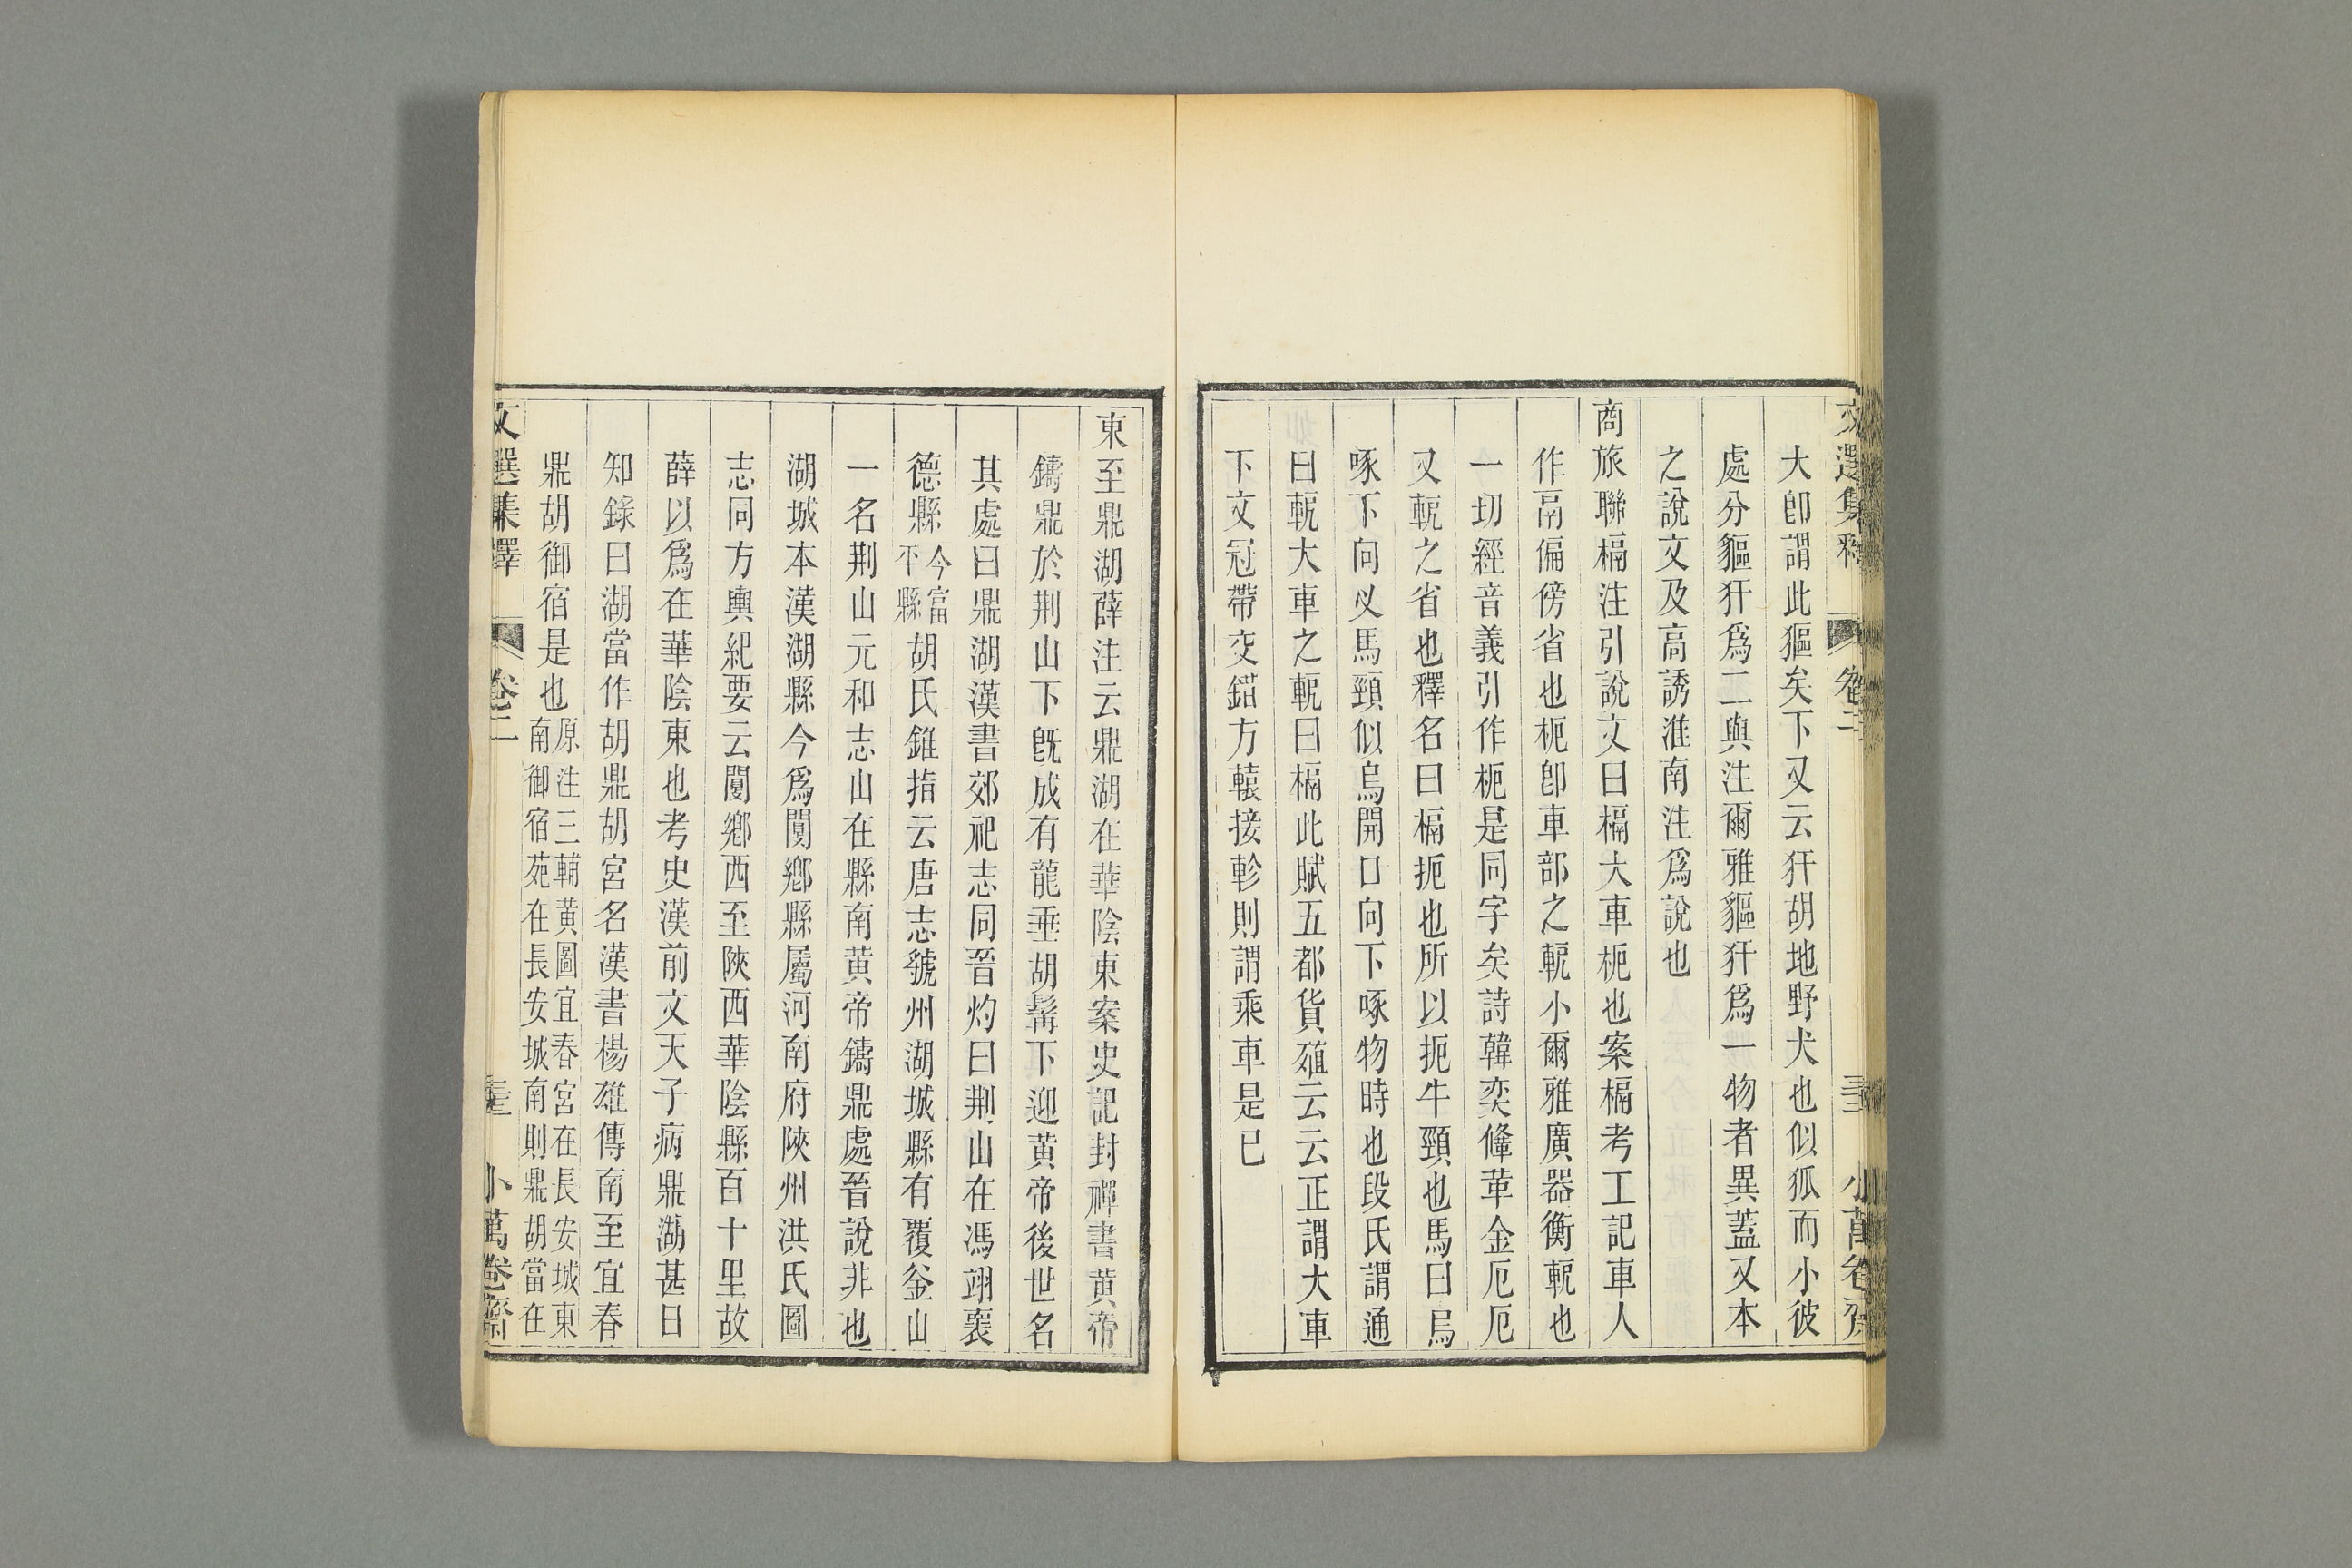 文選集釋 卷二 小萬卷齋
大卽謂此貙矣下又云犴胡地野犬也似狐而小彼
處分貙犴爲二與注爾雅貙犴爲一物者異蓋又本
之說文及高誘淮南注爲說也
商旅聯槅注引說文曰槅大車枙也案槅考工記車人
作鬲偏傍省也枙卽車部之軶小爾雅廣器衡軶也
一切經音義引作枙是同字矣詩韓奕鞗革金厄厄
又軶之省也釋名曰槅扼也所以扼牛頸也馬曰烏
啄下向乂馬頸似烏開口向下啄物時也段氏謂通
曰軶大車之軶曰槅此賦五都貨殖云云正謂大車
下文冠帶交錯方轅接軫則謂乘車是已
東至鼎湖薛注云鼎湖在華陰東案史記封禪書黃帝
鑄鼎於荆山下旣成有龍垂胡髯下迎黃帝後世名
其處曰鼎湖漢書郊祀志同晉灼曰荆山在馮翊襄
德縣今富平縣胡氏錐指云唐志虢州湖城縣有覆釜山
一名荆山元和志山在縣南黃帝鑄鼎處晉說非也
湖城本漢湖縣今爲閿鄉縣屬河南府陝州洪氏圖
志同方輿紀要云閿鄉西至陝西華陰縣百十里故
薛以爲在華陰東也考史漢前文天子病鼎湖甚日
知錄曰湖當作胡鼎胡宮名漢書楊雄傳南至宜春
鼎胡御宿是也原注三輔黃圖宜春宮在長安城東南御宿苑在長安城南則鼎胡當在
文選集釋 卷二 小萬卷齋